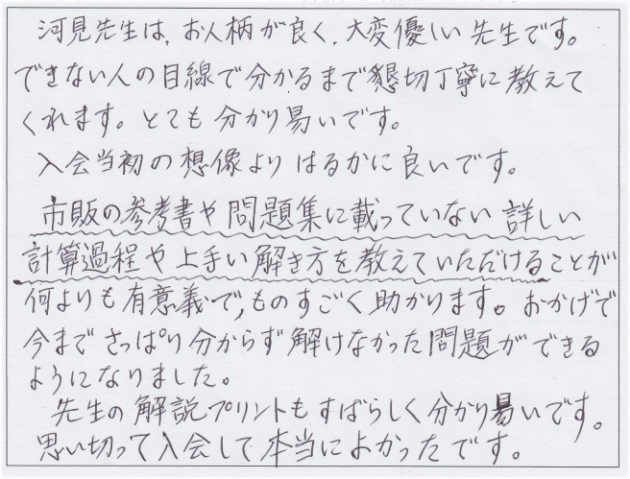 河見先生は、お人柄が良く、大変優しい先生です。
できない人の目線で分かるまで懇切丁寧に教えて
くれます。とても分かり易いです。
入会当初の想像よりはるかに良いです。
市販の参考書や問題集に載っていない詳しい
計算過程や上手い解き方を教えていただけることが
何よりも有意義で、ものすごく助かります。おかげで
今までさっぱり分からず解けなかった問題ができる
ようになりました。
先生の解説プリントもすばらしく分かり易いです。
思い切って入会して本当によかったです。